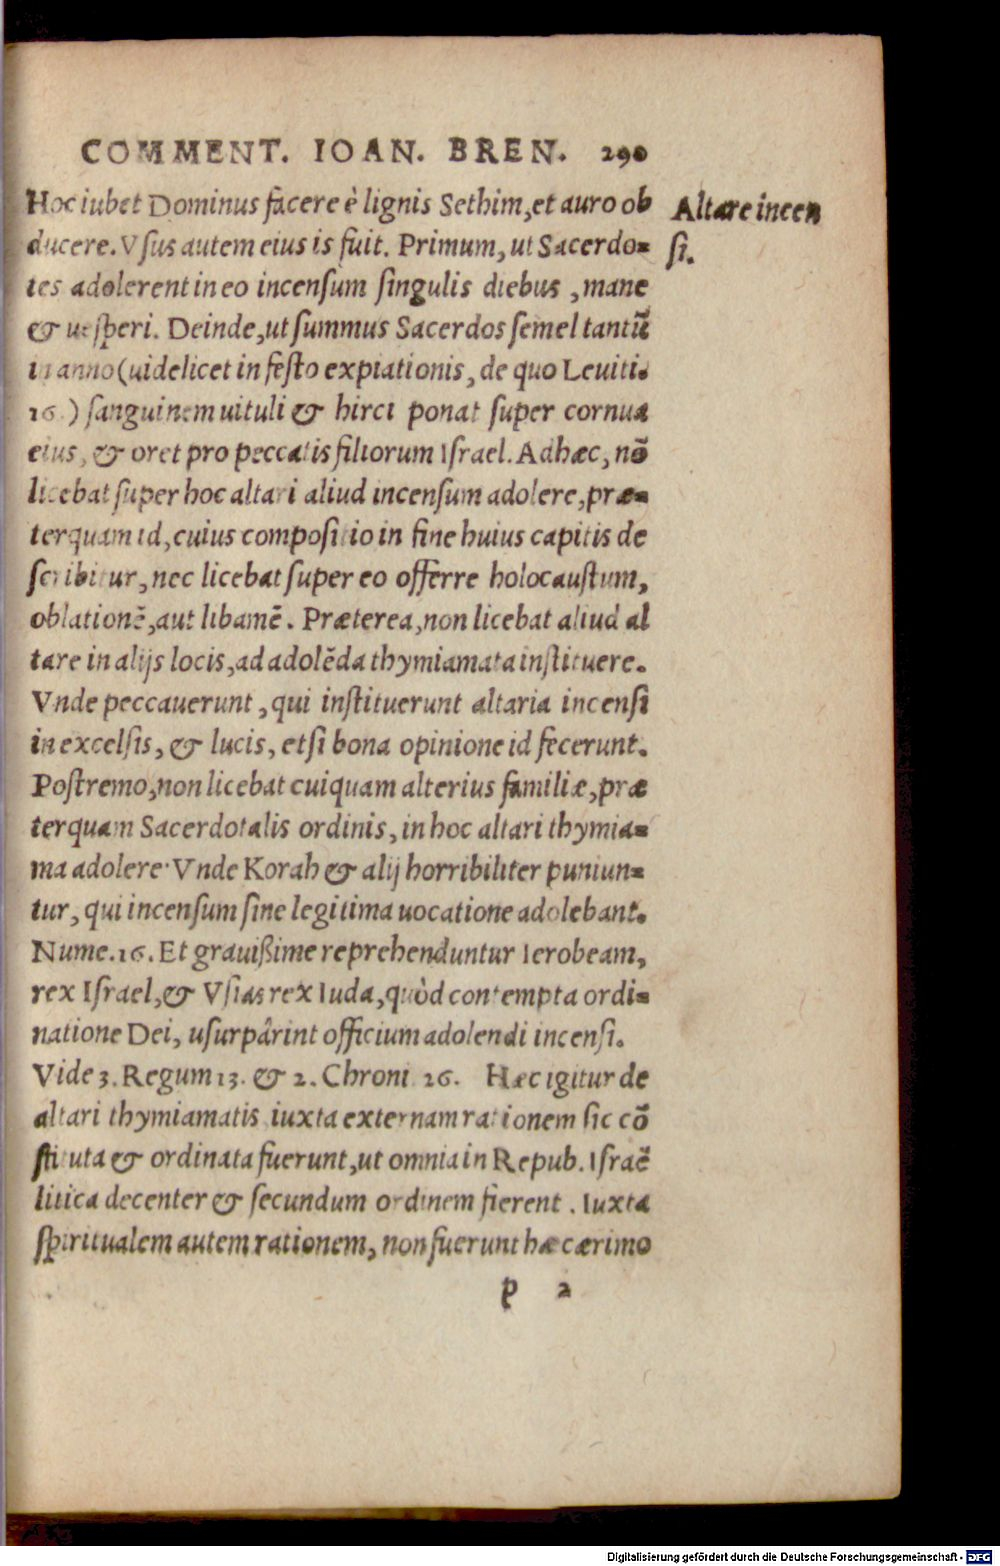 COMMENT. IOAN. BREN. 290
Hoc iubet Dominus facere è lignis Sethim, et auro ob
ducere. Vsus autem eius is fuit. Primum, ut Sacerdo-
tes adolerent in eo incensum singulis diebus, mane
& uesperi. Deinde, ut summus Sacerdos semel tantũ
in anno (uidelicet in festo expiationis, de quo Leuiti.
16.) sanguinem uituli & hirci ponat super cornua
eius, & oret pro peccatis filiorum Israel. Adhæc, nõ
licebat super hoc altari aliud incensum adolere, præ-
terquam id, cuius compositio in fine huius capitis de
scribitur, nec licebat super eo offerre holocaustum,
oblationẽ, aut libamẽ. Præterea, non licebat aliud al
tare in alijs locis, ad adolẽda thymiamata instituere.
Vnde peccauerunt, qui instituerunt altaria incensi
in excelsis, & lucis, etsi bona opinione id fecerunt.
Postremo, non licebat cuiquam alterius familiæ, præ
terquam Sacerdotalis ordinis, in hoc altari thymia-
ma adolere. Vnde Korah & alij horribiliter puniun-
tur, qui incensum sine legitima uocatione adolebant.
Nume. 16. Et grauißime reprehenduntur Ierobeam,
rex Israel, & Vsias rex Iuda, quòd contempta ordi-
natione Dei, usurpârint officium adolendi incensi.
Vide 3. Regum 13. & 2. Chroni 26. Hæc igitur de
altari thymiamatis iuxta externam rationem sic cõ
stituta & ordinata fuerunt, ut omnia in Repub. Israẽ
litica decenter & secundum ordinem fierent. Iuxta
spiritualem autem rationem, non fuerunt hæ cærimo
p 2
Altare incen
si.
Digitalisierung gefördert durch die Deutsche Forschungsgemeinschaft - DFG